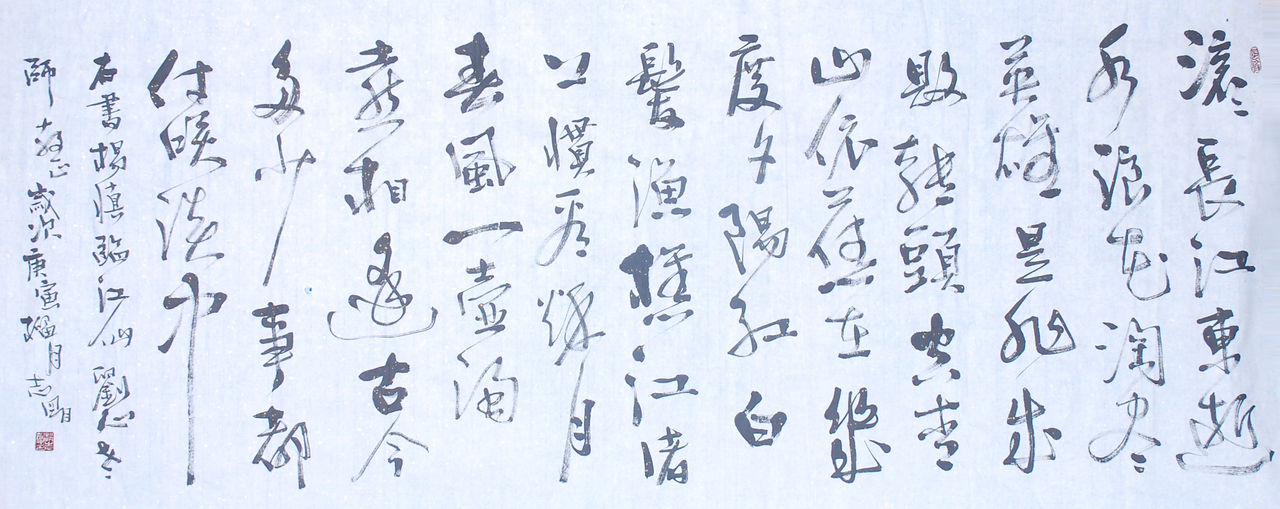 滚〻長江東逝
水浪花淘尽
英雄是非成
敗轉頭空青
山依舊在幾
度夕陽紅白
髮渔樵江渚
上慣看秋月
春風一壺濁
喜相逢古今
多少事都
付咲談中
右書楊慎臨江仙 劉心老
師 教正 歲次庚寅榴月志明